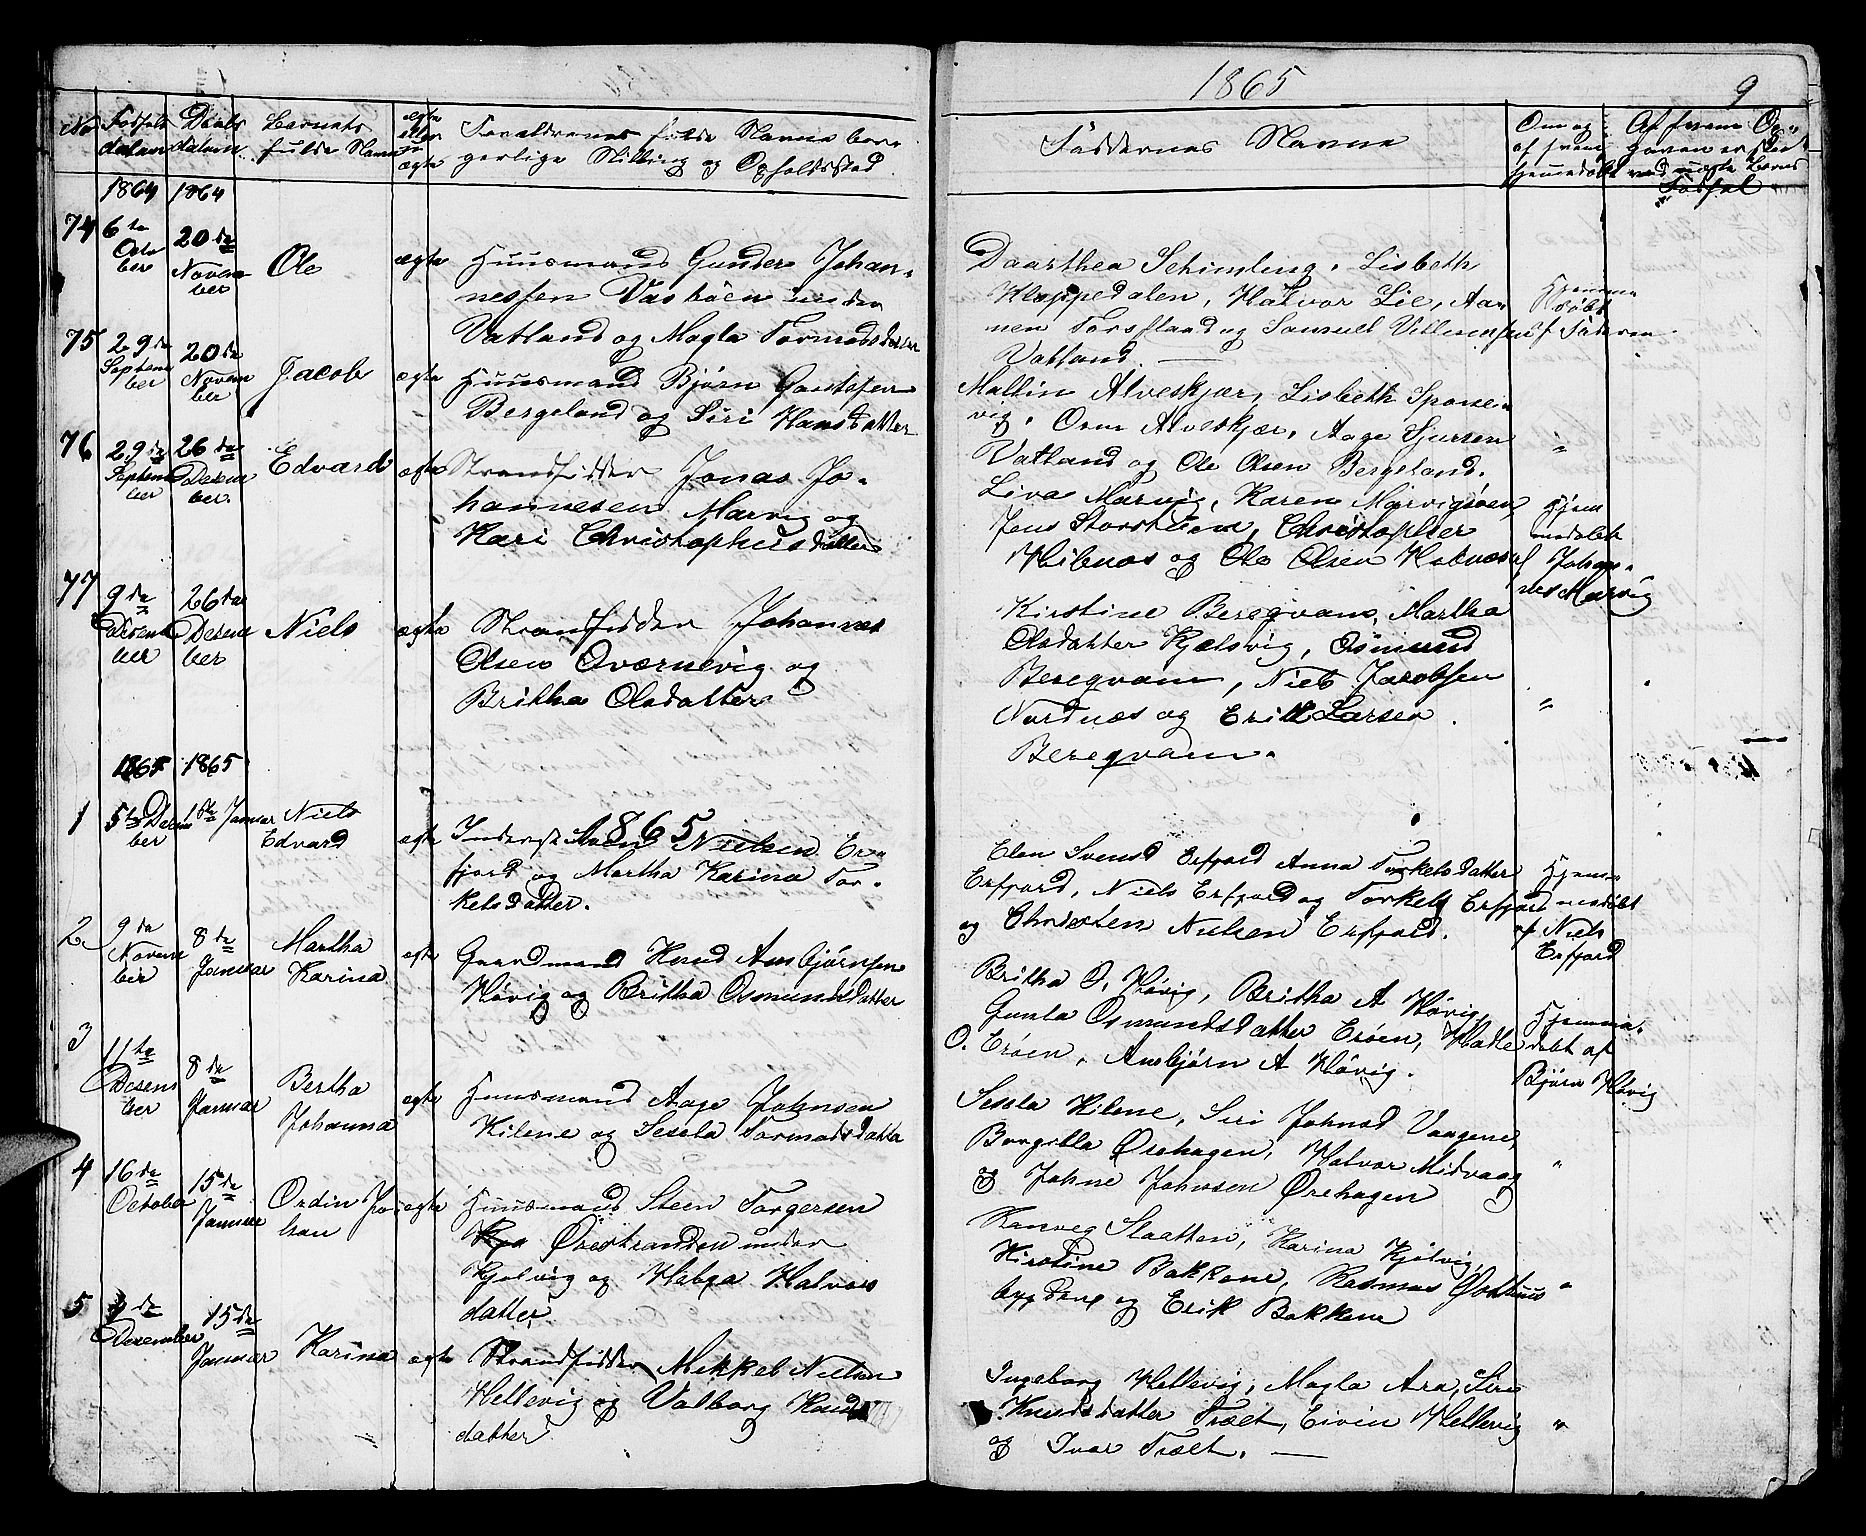 1865
9
No
Fødsels
datum
Daabs
datum
Barnets
fulde Navne
ægte
eller
u
ægte
Forældrenes fulde Navne bor-
gerlige Stilling og Opholdssted
Faddernes Navne
Om og
af hvem
hjemmedøbt
Af hvem Op-
gaven er skeet
ved uægte Børns
Fødsel
1864 1864
74
6te
Octo
ber
20de
Novem
ber
Ole
ægte
Huusmand Gunder Johan-
nessen Vashåen under
Vatland og Magla Tormodsdatter
Daarthea Schimling, Lisbeth
Kloppedalen, Halvor Lie, Aa-
nen Forsfland og Samuel Villumsen
Vatland
Hjemme
døbt
af Faderen
75
29de
Septem
ber
20de
Novem
ber
Jacob
ægte
Huusmand Bjørn Gautesen
Bergeland og Siri Hansdatter
Mallin Alveskjær, Lisbeth Sponse-
vig, Orm Alveskjær, Aage Sjursen
Vatland og Ole Olsen Bergeland.
"
76
29de
Septem
ber
26de
Desem
ber
Edvard
ægte
Strandsidder Jonas Jo-
hannesen Marvig og
Kari Christophersdatter
Liva Marvig, Karen Marvigsøen,
Jens Storsthun, Christopher
Hilenæs og Ole Olsen Halnæs
Hjem
medøbt
af Johan-
nes Marvig
77
9de
Desem
ber
26de
Desem
ber
Niels
ægte
Strandsidder Johannes
Olsen Qværnevig og
Britha Olsdatter
Kirstine Beregvam, Martha
Olsdatter Kjølsvig, Osmund
Beregvam, Niels Jacobsen
Nordnæs og Erik Larsen
Beregvam.
"
1865 1865
1865
1
5te Desem
ber
1ste Januar
Niels
Edvard
ægte
Inderst Nielsen Er-
fjord og Martha Karina Tor-
kelsdatter.
Elen Svensd Erfjord Anna Torkelsdatter
Erfjord, Niels Erfjord og Torkel Erfjord
og Christen Nielsen Erfjord.
Hjem-
medøbt
af Niels
Erfjord
2
9de
Novem
ber
8de
Januar
Martha
Karina
ægte
Gaardmand Knud Ansbjørnsen
Høvig og Britha Osmundsdatter
Britha O. Høvig, Britha A Høvig,
Gunla Osmundsdatter Erøen, Hadle
O. Erøen, Ansbjørn A Høvig.
Hjemme-
døbt af
Bjørn Høvig
3
11te
Desem
ber
8de
Januar
Bertha
Johanna
ægte
Huusmand Aage Johnsen
Kilene og Sesela Tormodsdatter
Sesela Kilene, Siri Johnsd Vaagene,
Borgilla Ørehagen, Halvor Midvaag
og Johne Johnsen Ørehagen
"
4
16de
October
15de
Januar
Ordin Jo-
han
ægte
Huusmand Steen Torgersen
Ørestranden under
Kjølvig og Helga Halvors
datter
Ranveg Slaatten, Karina Kjølvig,
Kirstine Bakkene, Rasmus Østhuus
bygdeng og Erik Bakkene
"
5
4de
Desember
15de
Januar
Karina
ægte
Strandsidder Mikkel Nielsen
Hellevig og Valborg Knuds
datter
Ingeborg Hellevig, Magla Ara, Siri
Knudsdatter Træet, Eivin Hellevig
og Ivar Træet.
"